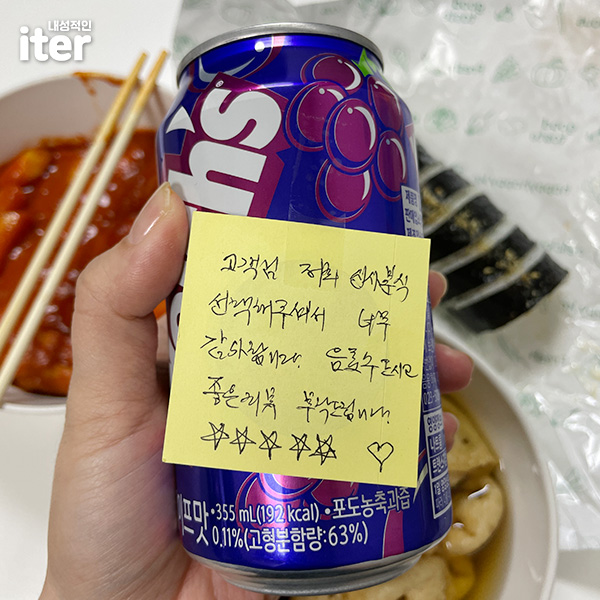 내성적인
iter
ch's
고객님 저희 신사분식
선택해주셔서 너무
감사합니다! 음료수 드시고
좋은리뷰 부탁드립니다!
☆☆☆☆☆ ♡
이프맛 •355 mL(192 kcal) •포도농축과즙
0.11%(고형분함량:63%)